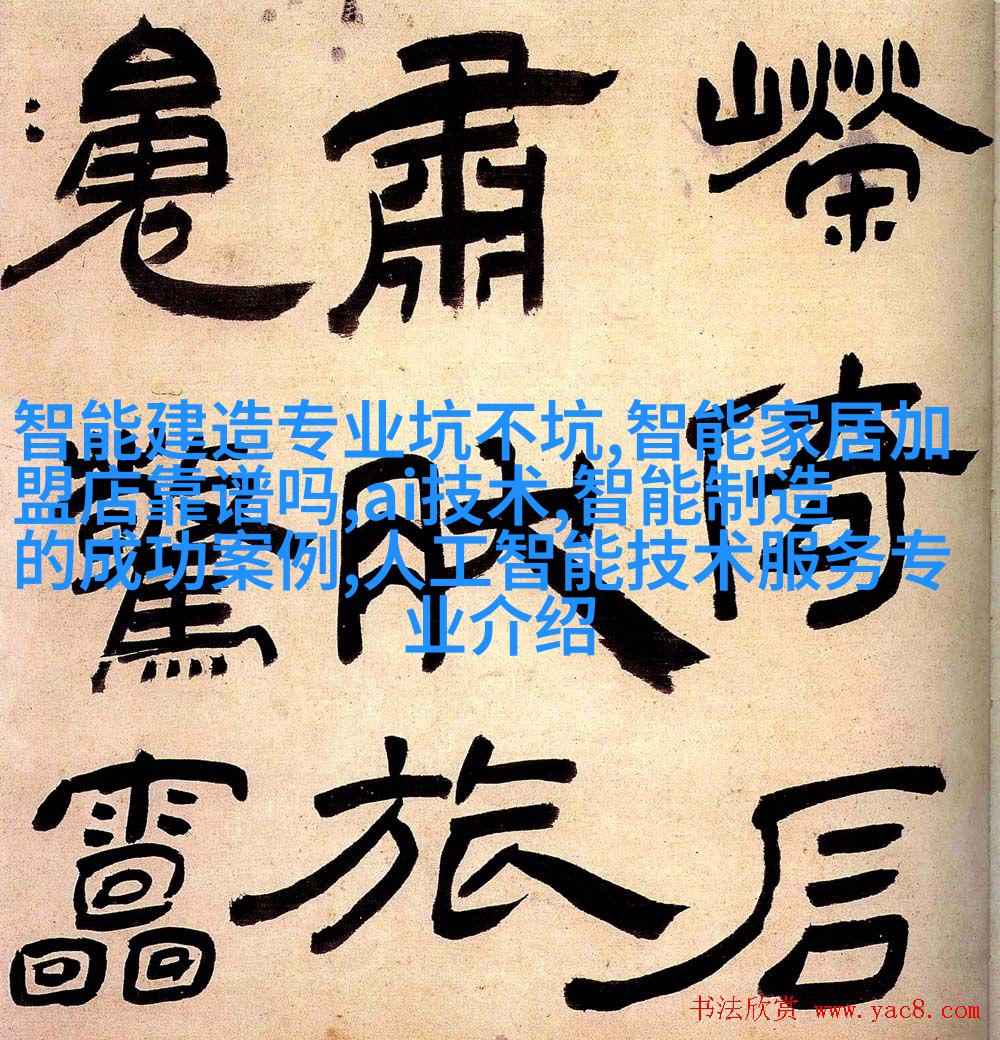 倚
肅旅
驚
智能建造专业坑不坑,智能家居加
盟店靠谱吗,ai技术,智能制造
的成功案例,人工智能技术服务专
业介绍
书法欣赏 www.yac8.com